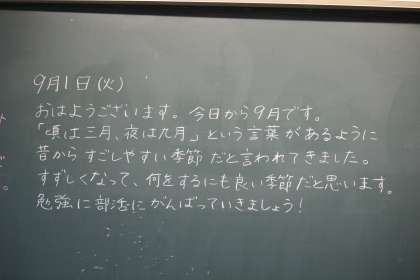 9月1日(火)
おはようございます。今日から9月です。
「頃は三月、夜は九月」という言葉があるように
昔からすごしやすい季節だと言われてきました。
すずしくなって、何をするにも良い季節だと思います。
勉強に部活にがんばっていきましょう!